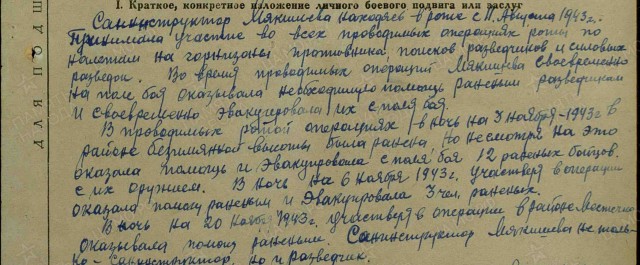 I. Краткое, конкретное изложение личного боевого подвига или заслуг
Санинструктор Мякишева находясь в роте с 11. Августа 1943 г.
Принимала участие во всех проводимых операциях роты по
налетам на гарнизоны противника, поисков разведчиков и силовых
разведок. Во время проводимых операций Мякишева своевременно
на поле боя оказывала необходимую помощь раненым разведчикам
и своевременно эвакуировала их с поля боя.
В проводимых ротой операциях в ночь на 3 ноября-1943 г в
районе безимянной высоты была ранена, но несмотря на это
оказала помощь и эвакуировала с поля боя 12 раненых бойцов.
с их оружием. В ночь на 6 ноября 1943 г. участвуя в операции
оказала помощ раненым и эвакуировала 3 чел. раненых.
В ночь на 20 ноября 1943 г. участвуя в операции в районе
оказывала помощ раненым. Санинструктор Мякишева не толь-
ко-Санинструктор, но и разведчик.
ДЛЯ ПОДШ